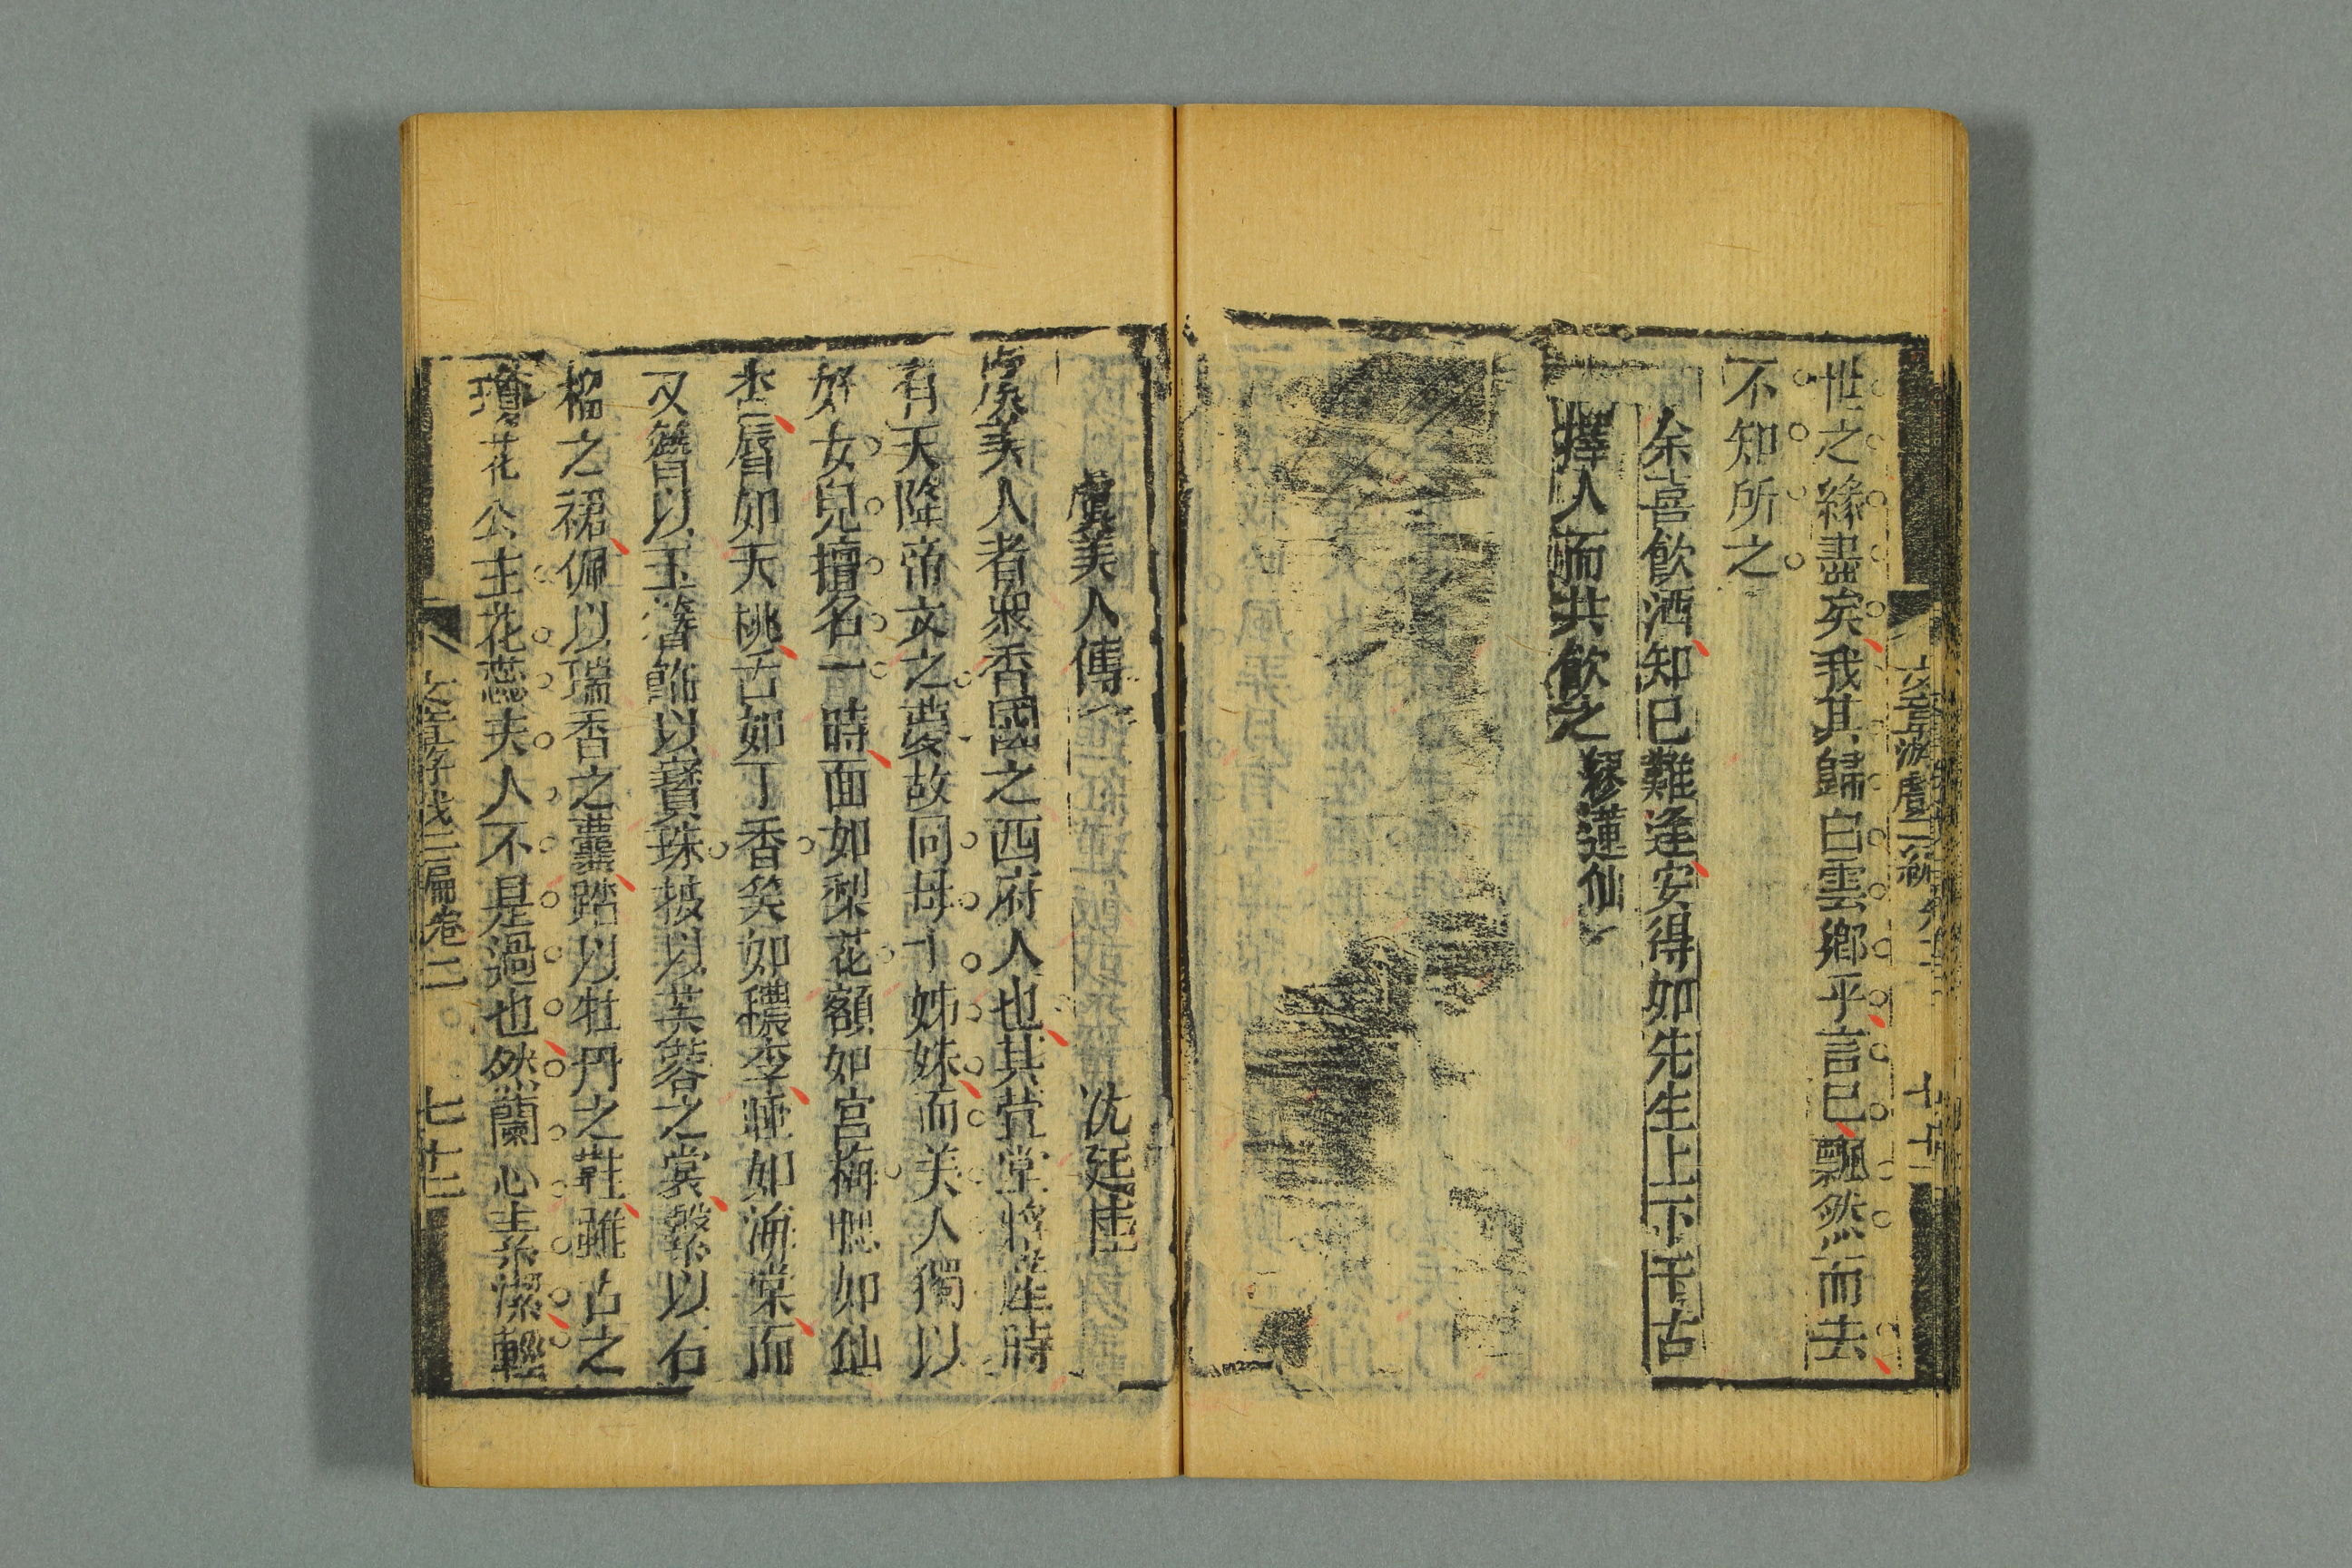 世之緣盡矣我其歸白雲鄉乎言已飄然而去
不知所之
余喜飲酒知已難逢安得如先生上下千古
擇人而共飲之 繆蓮仙
虞美人傳 沈廷桂
虞美人者衆香國之西府人也其萱堂將產時
有天降帝女之夢故同母十姊妹而美人獨以
好女兒擅名一時面如梨花額如宮梅腮如仙
杏唇如夭桃舌如丁香笑如穠李睡如海棠而
又簪以玉簪飾以寶珠披以芙蓉之裳繫以石
榴之裙佩以瑞香之囊踏以牡丹之鞋雖古之
瓊花公主花蕊夫人不是過也然蘭心素潔輕
文章游戲二編卷二 七十二